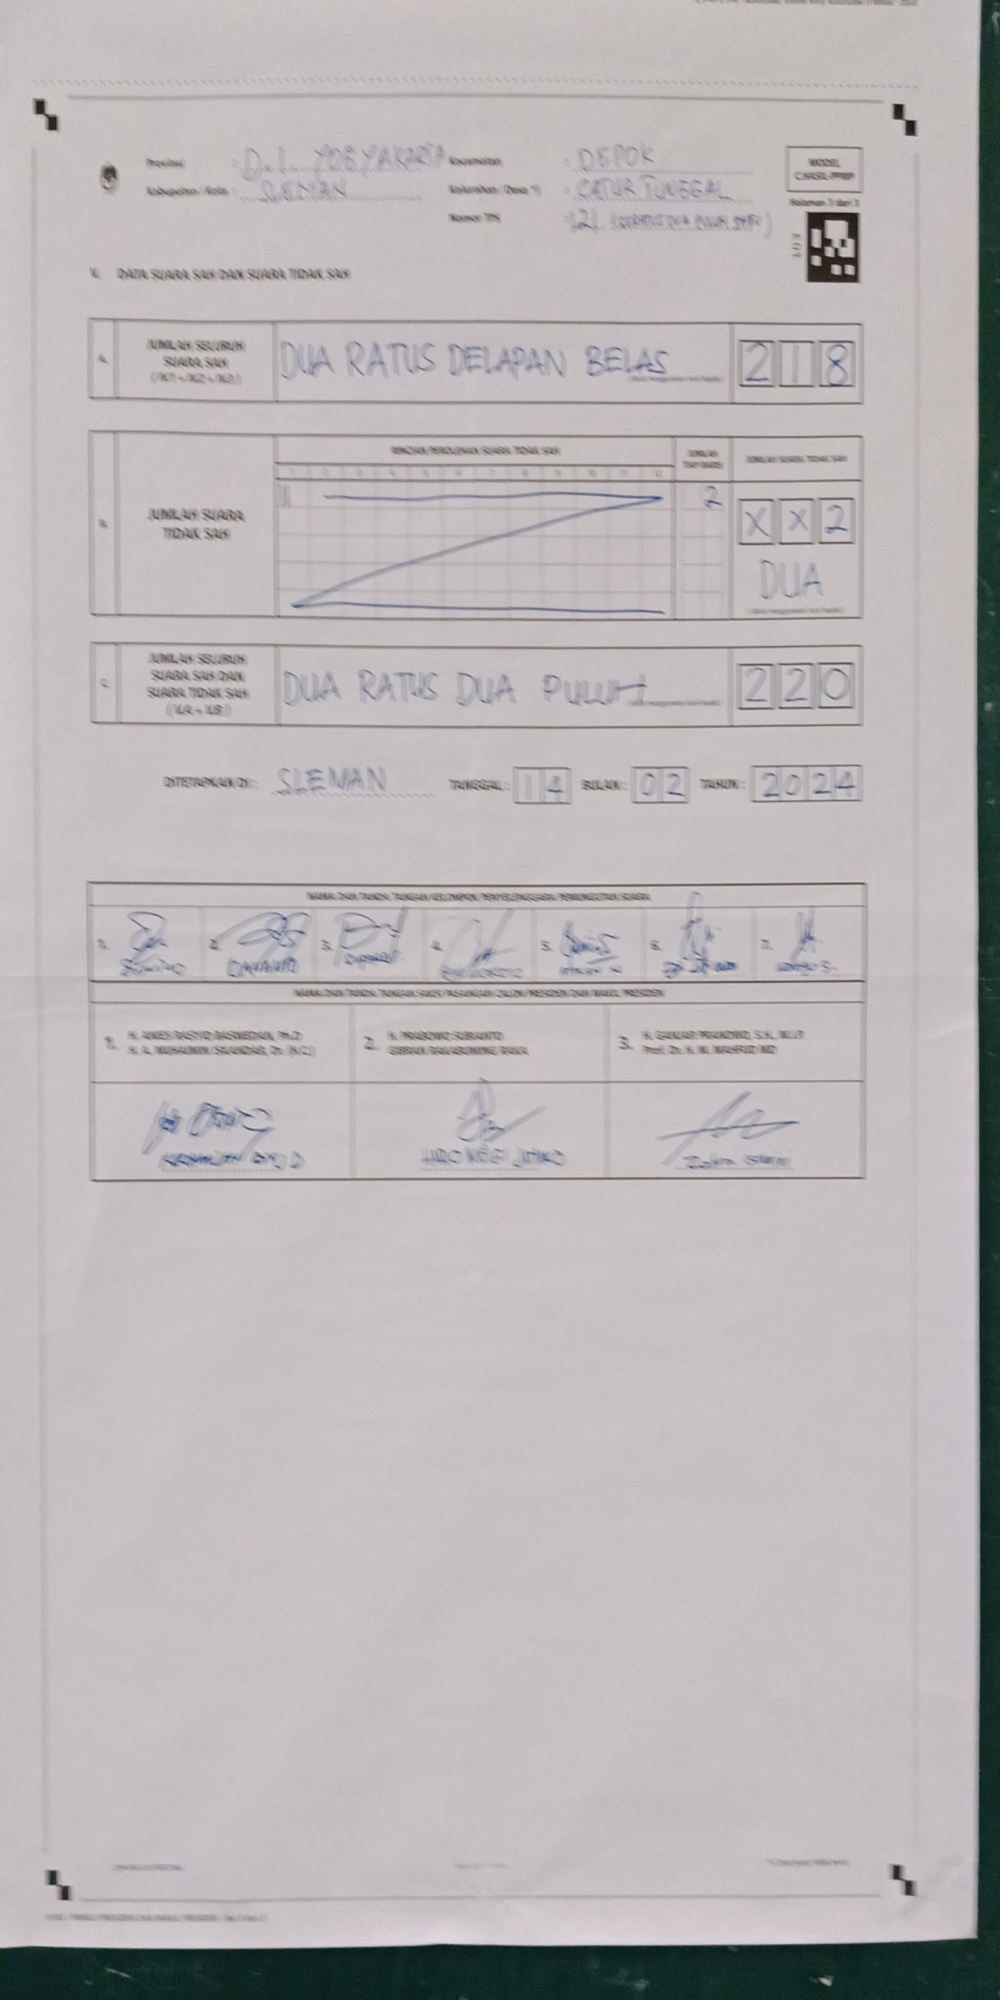 Provinsi : D.I. YOGYAKARTA Kecamatan : DEPOK
Kabupaten / Kota : SLEMAN Kelurahan / Desa *) : CATUR TUNGGAL
Nomor TPS : 121 (SERATUS DUA PULUH SATU)
MODEL
C.HASIL-PPWP
Halaman 3 dari 3
V. DATA SUARA SAH DAN SUARA TIDAK SAH
A. JUMLAH SELURUH
SUARA SAH
DUA RATUS DELAPAN BELAS 2 1 8
RINCIAN PEROLEHAN SUARA TIDAK SAH JUMLAH SUARA TIDAK SAH
1 2 3 4 5 6 7 8 9 10 11 12
B. JUMLAH SUARA
TIDAK SAH
2 X X 2
DUA
C. JUMLAH SELURUH
SUARA SAH DAN
SUARA TIDAK SAH
DUA RATUS DUA PULUH 2 2 0
DITETAPKAN DI : SLEMAN TANGGAL : 1 4 BULAN : 0 2 TAHUN : 2 0 2 4
NAMA DAN TANDA TANGAN KELOMPOK PENYELENGGARA PEMUNGUTAN SUARA
1. 2. 3. 4. 5. 6. 7.
NAMA DAN TANDA TANGAN SAKSI PASANGAN CALON PRESIDEN DAN WAKIL PRESIDEN
1. H. ANIES RASYID BASWEDAN, Ph.D.
H. A. MUHAIMIN ISKANDAR, Dr. (H.C.)
2. H. PRABOWO SUBIANTO
GIBRAN RAKABUMING RAKA
3. H. GANJAR PRANOWO, S.H., M.I.P.
Prof. Dr. H. M. MAHFUD MD